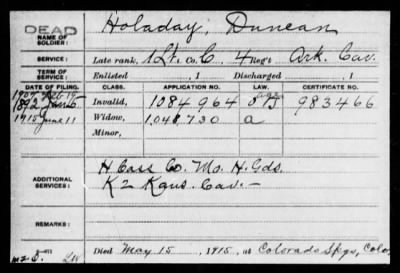 DEAD
NAME OF SOLDIER: Holaday, Duncan
SERVICE: Late rank, 1 Lt. Co. C, 4 Reg't Ark. Cav.
TERM OF SERVICE: Enlisted , 1 Discharged , 1
DATE OF FILING. CLASS. APPLICATION NO. LAW. CERTIFICATE NO.
1892 Jan 5 Invalid, 1084964 983466
1915 June 11 Widow, 1048730 a
Minor,
ADDITIONAL SERVICES: H Cass Co. Mo. H. Gds.
K 2 Kans. Cav. —
REMARKS:
Died May 15, 1915, at Colorado Spgs, Colo